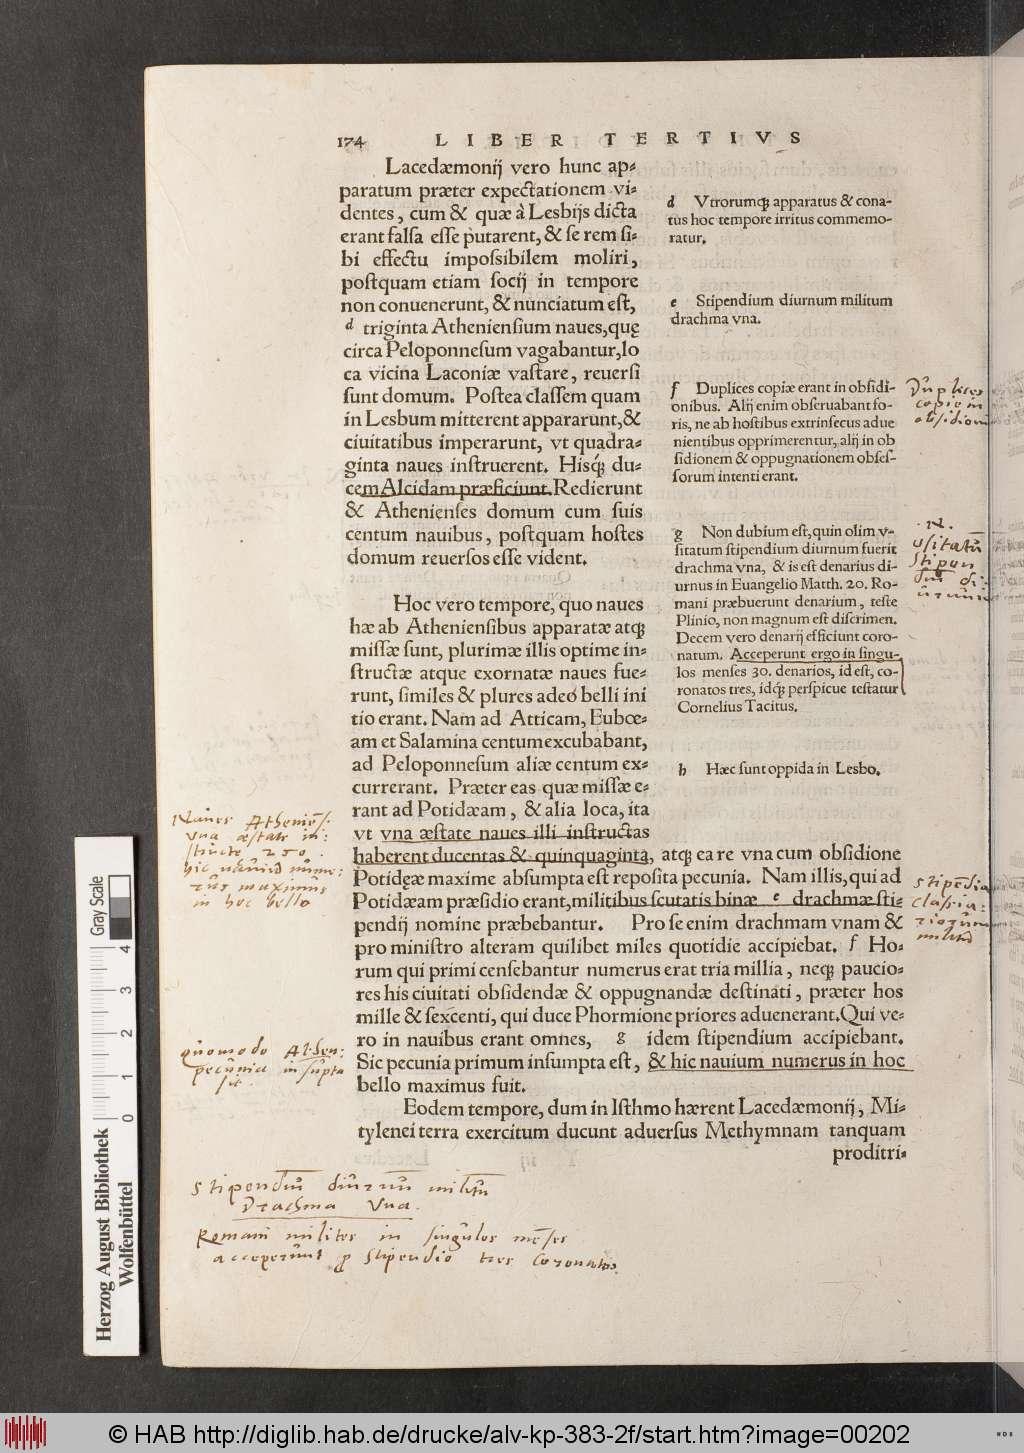 174 LIBER TERTIVS
Lacedæmonij vero hunc ap⸗
paratum præter expectationem vi⸗
dentes, cum & quæ à Lesbijs dicta
erant falsa esse putarent, & se rem si⸗
bi effectu impossibilem moliri,
postquam etiam socij in tempore
non conuenerunt, & nunciatum est,
d triginta Atheniensium naues, quę
circa Peloponnesum vagabantur, lo
ca vicina Laconiæ vastare, reuersi
sunt domum. Postea classem quam
in Lesbum mitterent appararunt, &
ciuitatibus imperarunt, vt quadra⸗
ginta naues instruerent. Hisq́; du⸗
cem Alcidam præficiunt. Redierunt
& Athenienses domum cum suis
centum nauibus, postquam hostes
domum reuersos esse vident.
Hoc vero tempore, quo naues
hæ ab Atheniensibus apparatæ atq;
missæ sunt, plurimæ illis optime in⸗
structæ atque exornatæ naues fue⸗
runt, similes & plures adeo belli ini
tio erant. Nam ad Atticam, Eubœ⸗
am et Salamina centum excubabant,
ad Peloponnesum aliæ centum ex⸗
currerant. Præter eas quæ missæ e⸗
rant ad Potidæam, & alia loca, ita
vt vna æstate naues illi instructas
haberent ducentas & quinquaginta, atq; ea re vna cum obsidione
Potidęæ maxime absumpta est reposita pecunia. Nam illis, qui ad
Potidæam præsidio erant, militibus scutatis binæ e drachmæ sti⸗
pendij nomine præbebantur. Pro se enim drachmam vnam &
pro ministro alteram quilibet miles quotidie accipiebat. f Ho⸗
rum qui primi censebantur numerus erat tria millia, neq; paucio⸗
res his ciuitati obsidendæ & oppugnandæ destinati, præter hos
mille & sexcenti, qui duce Phormione priores aduenerant. Qui ve⸗
ro in nauibus erant omnes, g idem stipendium accipiebant.
Sic pecunia primum insumpta est, & hic nauium numerus in hoc
bello maximus fuit.
Eodem tempore, dum in Isthmo hærent Lacedæmonij, Mi⸗
tylenei terra exercitum ducunt aduersus Methymnam tanquam
proditri⸗
d Vtrorumq; apparatus & cona-
tus hoc tempore irritus commemo-
ratur.
e Stipendium diurnum militum
drachma vna.
f Duplices copiæ erant in obsidi-
onibus. Alij enim obseruabant fo-
ris, ne ab hostibus extrinsecus adue
nientibus opprimerentur, alij in ob
sidionem & oppugnationem obses-
sorum intenti erant.
g Non dubium est, quin olim v-
sitatum stipendium diurnum fuerit
drachma vna, & is est denarius di-
urnus in Euangelio Matth. 20. Ro-
mani præbuerunt denarium, teste
Plinio, non magnum est discrimen.
Decem vero denarij efficiunt coro-
natum. Acceperunt ergo in singu-
los menses 30. denarios, id est, co-
ronatos tres, idq; perspicue testatur
Cornelius Tacitus.
h Hæc sunt oppida in Lesbo.
Duplices
copie in
obsidioni
N.
vsitatū
stipen
diū di
urnū
Naues Atheniēs:
vna æstate in:
structe 250.
hic nauiū nume:
rus maximus
in hoc bello
stipēdia
classia:
riorum
militū
quomodo Athen:
pecunia insūpta
sit.
stipendiū diurnū militū
Drachma vna.
Romani milites in singulos mēses
acceperunt p stipendio tres Coronatos
Gray Scale
0 1 2 3 4
Herzog August Bibliothek
Wolfenbüttel
© HAB http://diglib.hab.de/drucke/alv-kp-383-2f/start.htm?image=00202